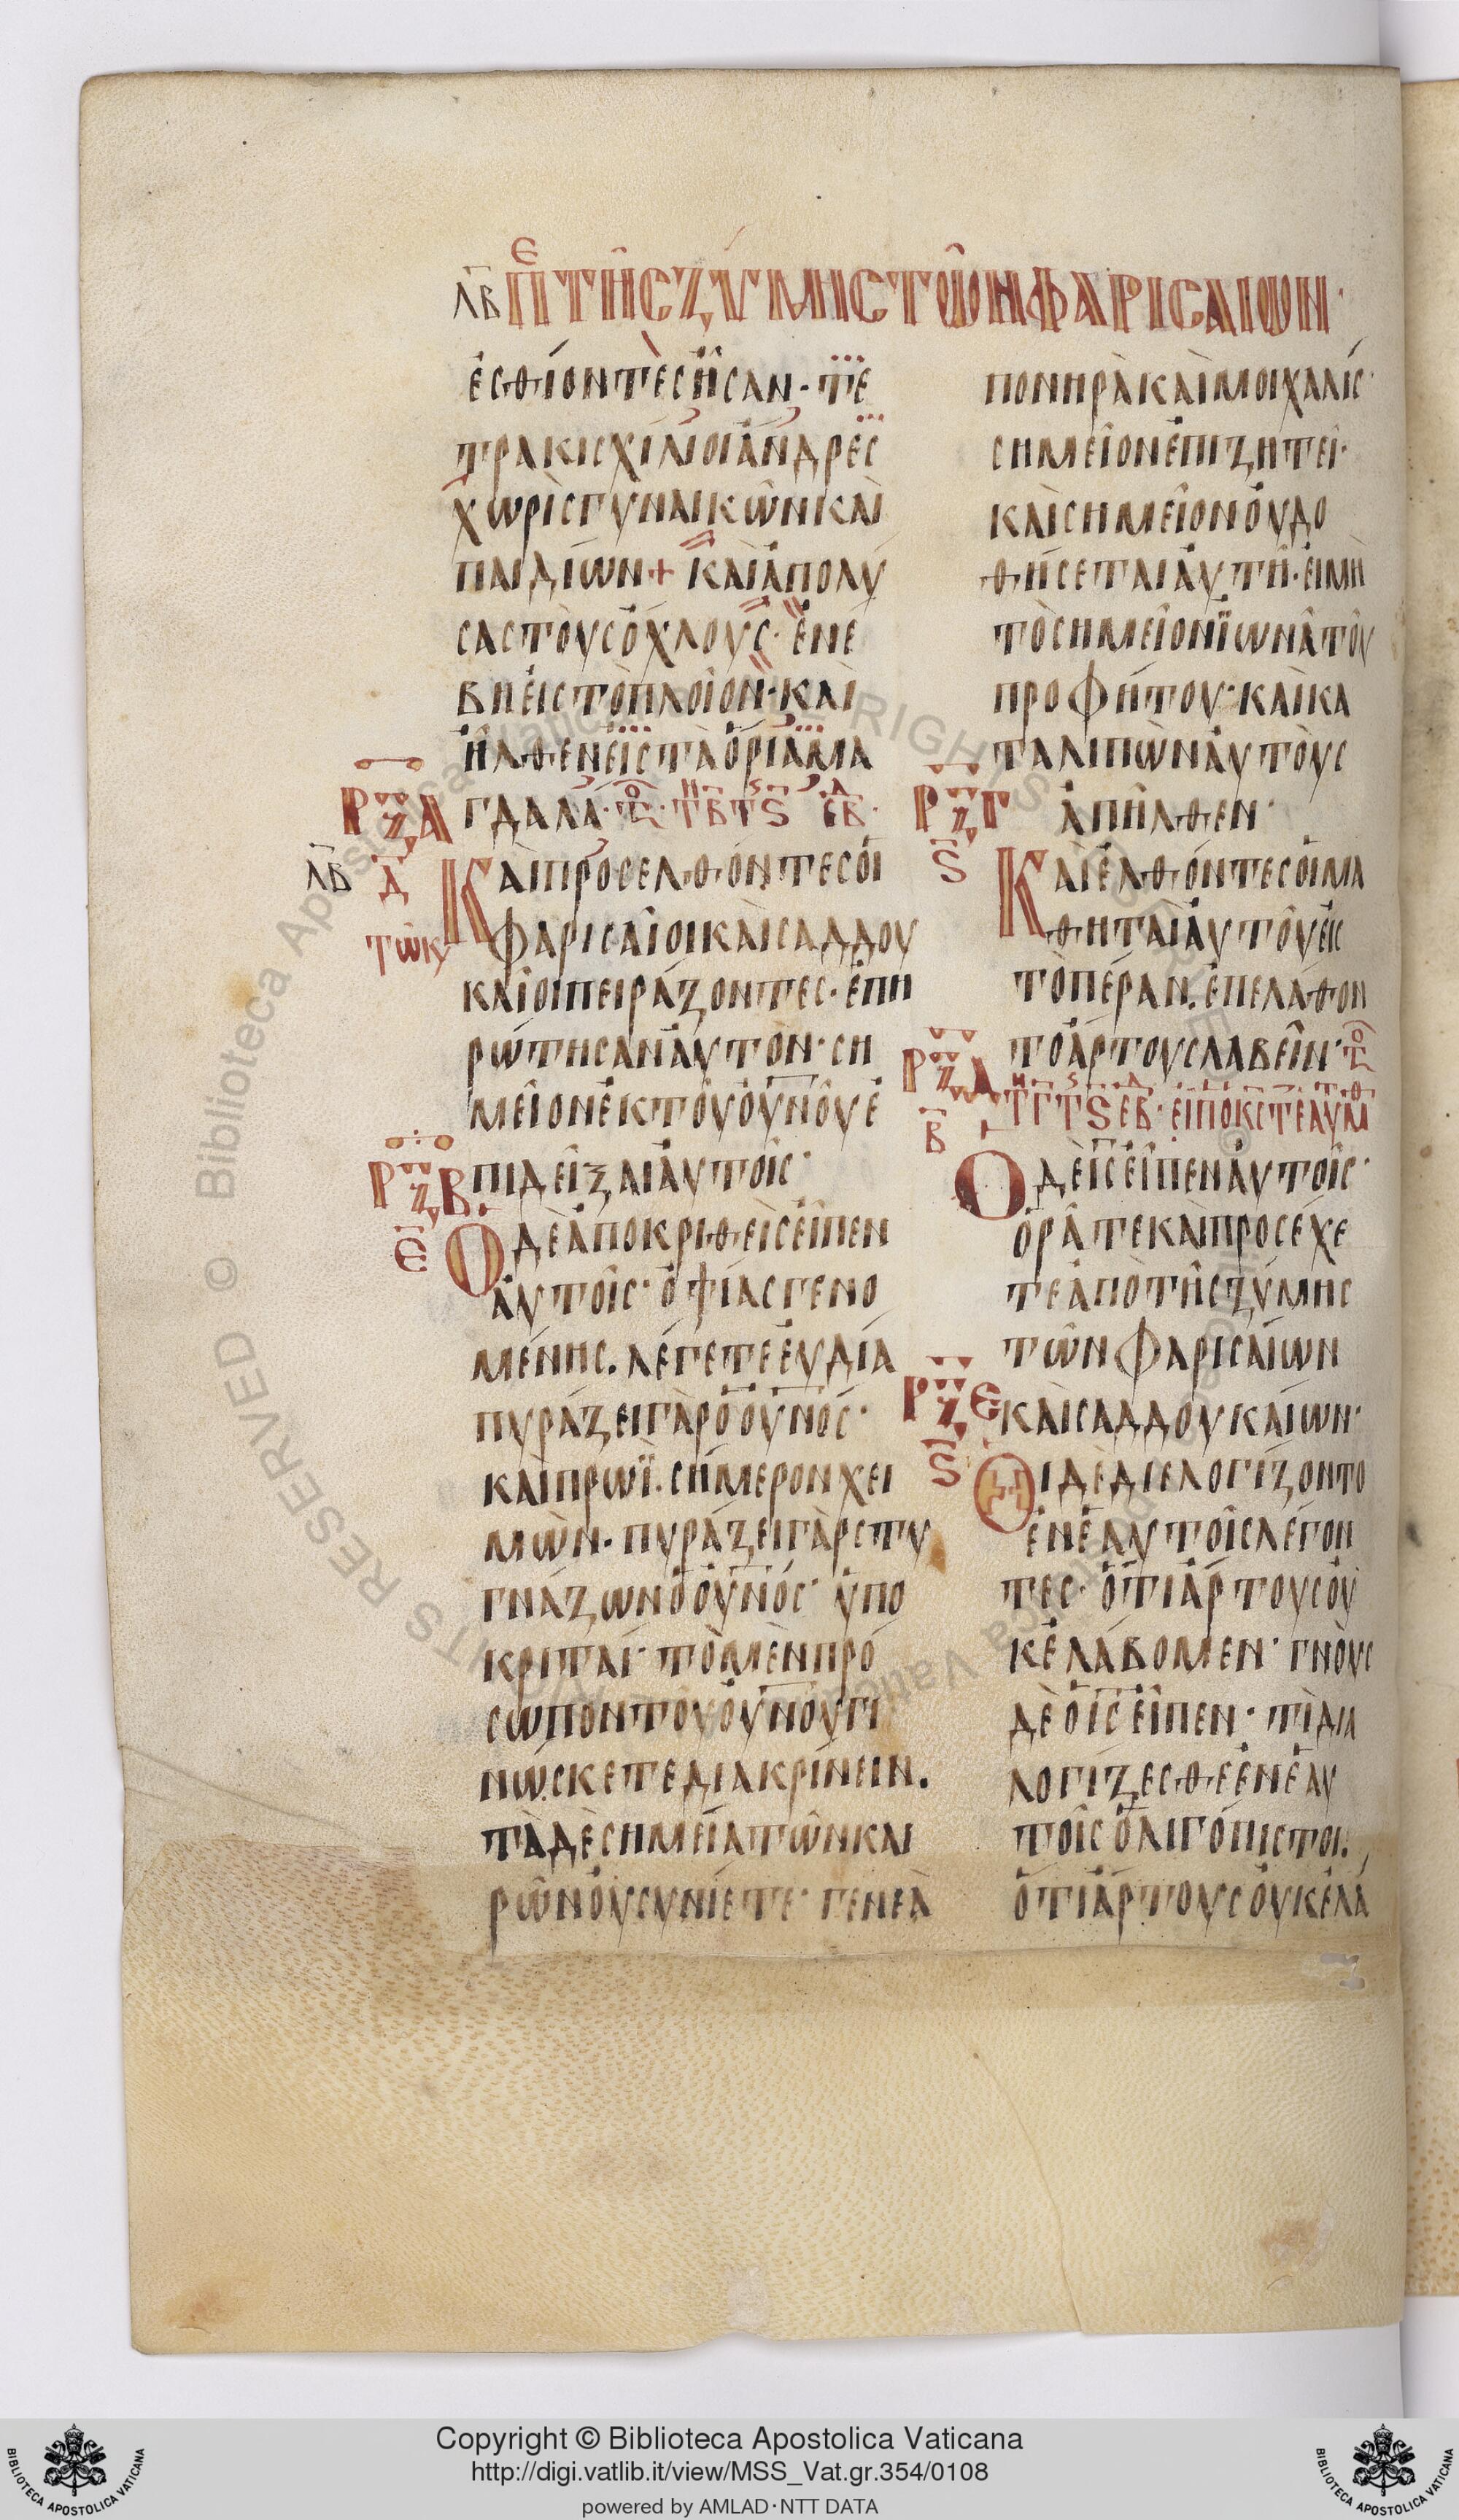 ε
λβ π̅ τῆς ζύμης τῶν φαρισαίων·
ἐσθίοντες ἦσαν· τε
τρακισχίλιοι ἄνδρες
χωρὶς γυναικῶν καὶ
παιδίων + καὶ ἀπολύ
σας τοὺς ὄχλους· ἐνέ
βη εἰς τὸ πλοῖον· καὶ
ἦλθεν εἰς τὰ ὅρια μα
ρξα γδαλά·
λβ δ Καὶ προσελθόντες οἱ
φαρισαῖοι καὶ σαδδου
καῖοι πειράζοντες· ἐπη
ρώτησαν αὐτὸν· ση
μεῖον ἐκ τοῦ οὐνοῦ ἐ
ρξβ πιδεῖξαι αὐτοῖς·
ε Ὁ δὲ ἀποκριθεὶς εἶπεν
αὐτοῖς· ὀψίας γενο
μένης. λέγετε εὐδία
πυράζει γὰρ ὁ οὐνός·
καὶ πρωῒ. σήμερον χει
μὼν· πυράζει γὰρ στυ
γνάζων ὁ οὐνός· ὑπο
κριταί· τὸ μὲν πρό
σωπον τοῦ οὐνοῦ γι
νώσκετε διακρίνειν.
τὰ δὲ σημεῖα τῶν και
ρῶν οὐ συνίετε· γενεὰ
πονηρὰ καὶ μοιχαλίς·
σημεῖον ἐπιζητεῖ·
καὶ σημεῖον οὐ δο
θήσεται αὐτῇ· εἰ μὴ
τὸ σημεῖον ϊωνᾶ τοῦ
προφήτου· καὶ κα
ταλιπὼν αὐτοὺς
ρξγ ἀπῆλθεν·
ς Καὶ ἐλθόντες οἱ μα
θηταὶ αὐτοῦ εἰς
τὸ πέραν. ἐπελάθον
το ἄρτους λαβεῖν·
ρξδ
β Ὁ δὲ ις εἶπεν αὐτοῖς·
ὁρᾶτε καὶ προσέχε
τε ἀπὸ τῆς ζύμης
τῶν φαρισαίων
ρξε καὶ σαδδουκαίων·
ς Οἱ δὲ διελογίζοντο
ἐν ἑαυτοῖς λέγον
τες· ὅτι ἄρτους οὐ
κ ἐλάβομεν· γνοὺς
δὲ ὁ ις εἶπεν· τὶ δια
λογίζεσθε ἐν ἑαυ
τοῖς ὀλιγόπιστοι.
ὅτι ἄρτους οὐκ ἐλά
Copyright © Biblioteca Apostolica Vaticana
http://digi.vatlib.it/view/MSS_Vat.gr.354/0108
powered by AMLAD·NTT DATA